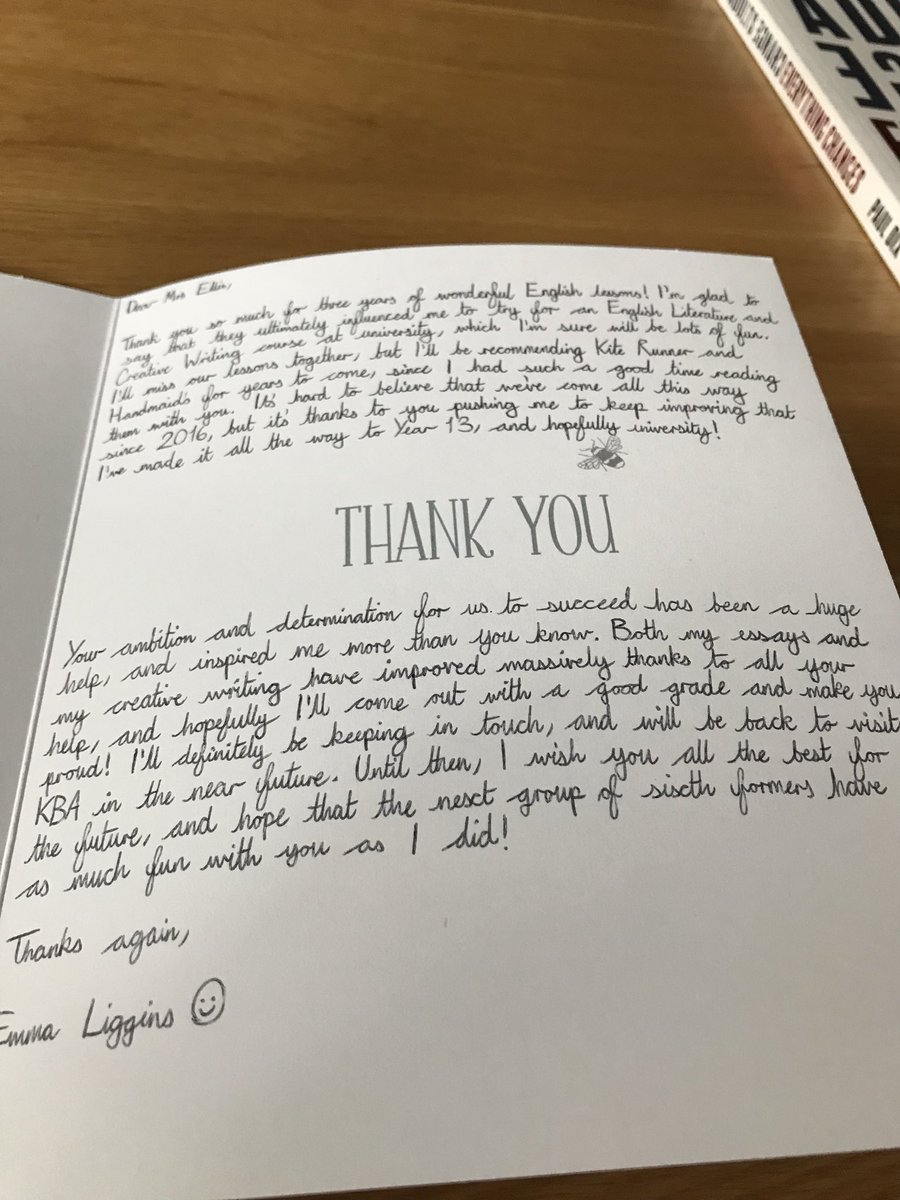 ADULTS CHANGE EVERYTHING CHANGES
PAUL DIX
Dear Mrs Ellis,
Thank you so much for three years of wonderful English lessons! I'm glad to
say that they ultimately influenced me to try for an English Literature and
Creative Writing course at university, which I'm sure will be lots of fun.
I'll miss our lessons together, but I'll be recommending Kite Runner and
Handmaid's for years to come, since I had such a good time reading
them with you. It's hard to believe that we've come all this way
since 2016, but it's thanks to you pushing me to keep improving that
I've made it all the way to Year 13, and hopefully university!
THANK YOU
Your ambition and determination for us to succeed has been a huge
help, and inspired me more than you know. Both my essays and
my creative writing have improved massively thanks to all your
help, and hopefully I'll come out with a good grade and make you
proud! I'll definitely be keeping in touch, and will be back to visit
KBA in the near future. Until then, I wish you all the best for
the future, and hope that the next group of sixth formers have
as much fun with you as I did!
Thanks again,
Emma Liggins